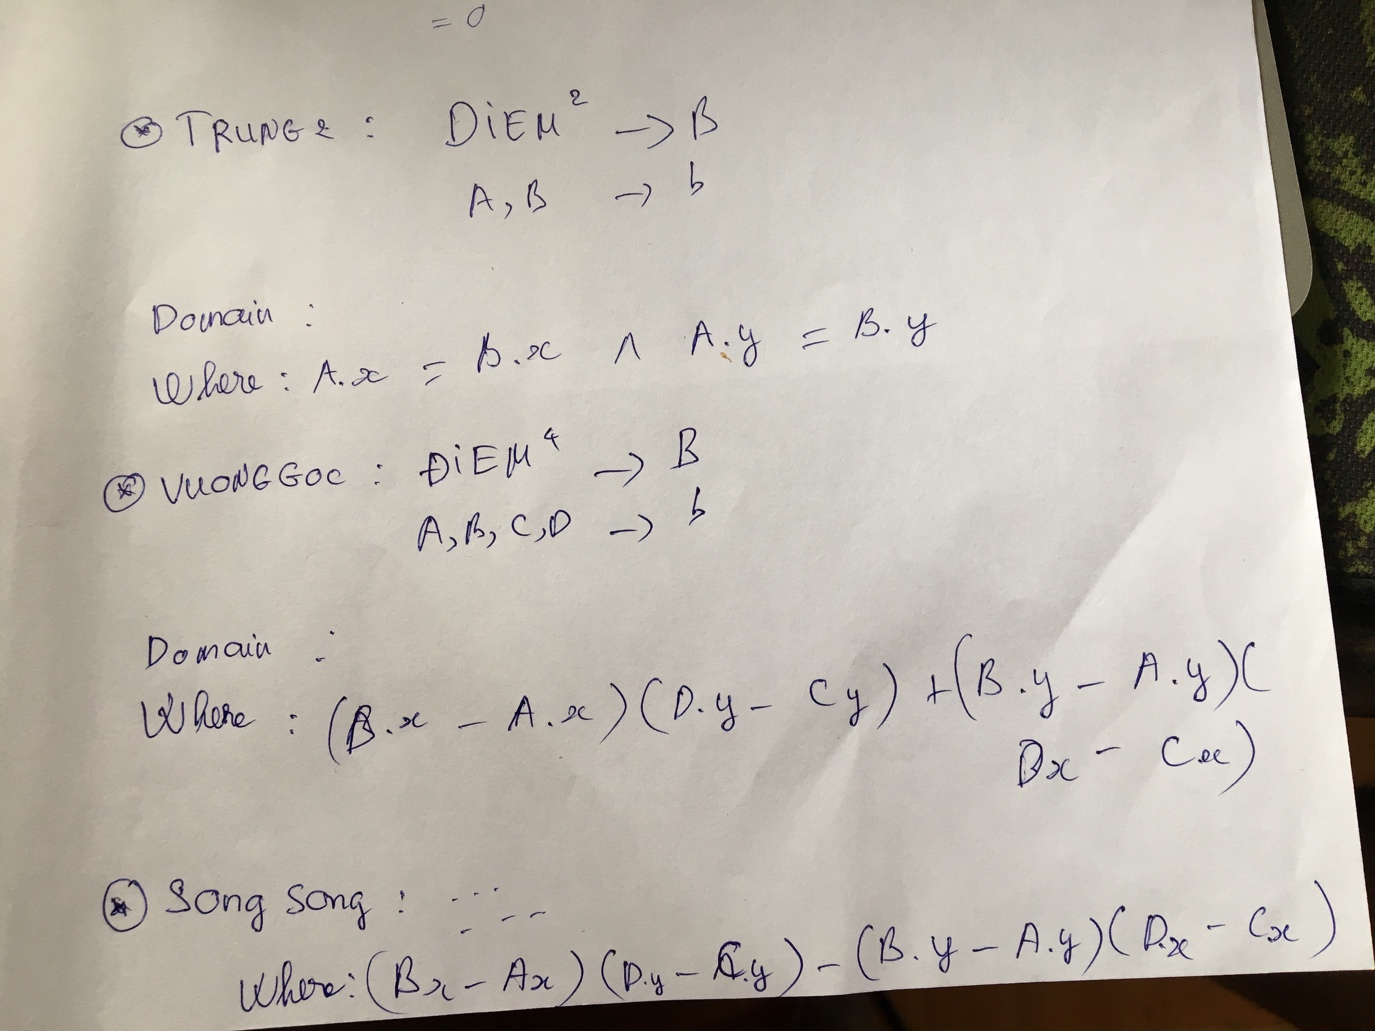 = 0
⊛ TRUNG2 : DiEM² → B
A, B → b
Domain :
Where : A.x = B.x ∧ A.y = B.y
⊛ VUONGGOC : ĐiEM⁴ → B
A, B, C, D → b
Domain :
Where : (B.x - A.x)(D.y - Cy) + (B.y - A.y)(
Dx - Cx)
⊛ Song Song : ... --
Where: (Bx - Ax)(D.y - C.y) - (B.y - A.y)(D.x - Cx)